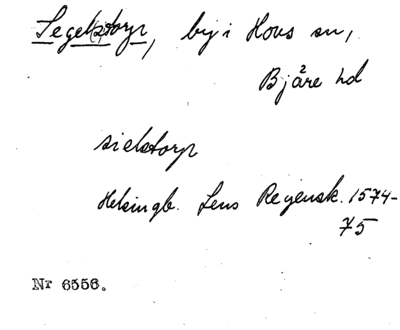 Segel(s)torp, by i Hovs sn,
Bjäre hd
sielstorp
Helsingb. Lens Regensk. 1574-
75
Nr 6556.